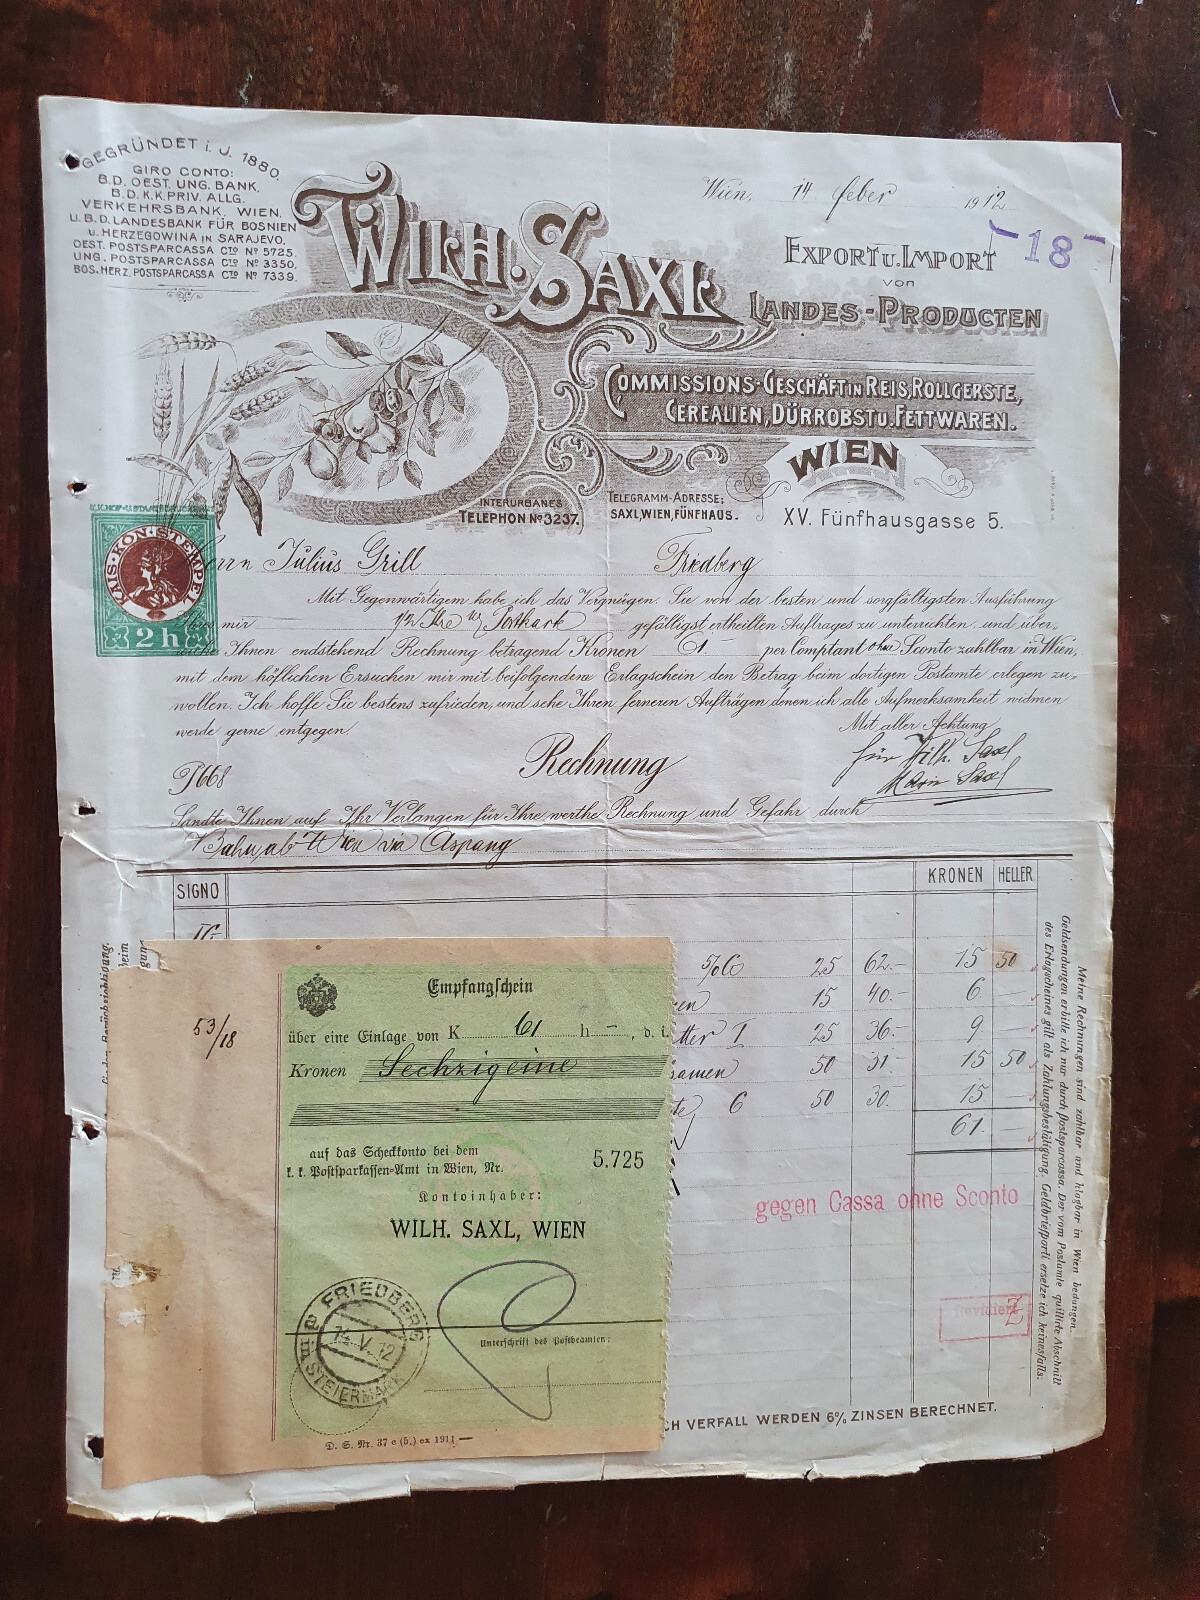 GEGRÜNDET i. J. 1880.
GIRO CONTO:
B.D. OEST. UNG. BANK.
B.D. K.K. PRIV. ALLG.
VERKEHRSBANK, WIEN.
U.B.D. LANDESBANK FÜR BOSNIEN
U. HERZEGOWINA IN SARAJEVO.
OEST. POSTSPARCASSA Cto No 5725.
UNG. POSTSPARCASSA Cto No 3350.
BOS. HERZ. POSTSPARCASSA Cto No 7339.
Wien, 14 feber 1912
WILH. SAXL
-18-
EXPORT U. IMPORT
VON
LANDES-PRODUCTEN
COMMISSIONS-GESCHÄFT IN REIS, ROLLGERSTE,
CEREALIEN, DÜRROBST U. FETTWAREN.
WIEN
INTERURBANES
TELEPHON No 3237.
TELEGRAMM-ADRESSE:
SAXL, WIEN, FÜNFHAUS.
XV. Fünfhausgasse 5.
KAIS·KÖN·STEMPEL
2 h
Herrn Julius Grill Friedberg
Mit Gegenwärtigem habe ich das Vergnügen, Sie von der besten und sorgfältigsten Ausführung
mir Postkarte gefälligst ertheilten Auftrages zu unterrichten und über-
Ihnen endstehend Rechnung betragend Kronen 61.- per Comptant ohne Sconto zahlbar in Wien,
mit dem höflichen Ersuchen mir mit beifolgendem Erlagschein den Betrag beim dortigen Postamte erlegen zu
wollen. Ich hoffe Sie bestens zufrieden, und sehe Ihren ferneren Aufträgen denen ich alle Aufmerksamkeit widmen
werde gerne entgegen.
Mit aller Achtung
für Wilh. Saxl
Marie Saxl
Rechnung
Sandte Ihnen auf Ihr Verlangen für Ihre werthe Rechnung und Gefahr durch
Bahn ab Wien via Aspang
SIGNO KRONEN HELLER
5/0 25 62.- 15 50
15 40.- 6 -
I 25 36.- 9 -
samen 50 31.- 15 50
6 50 30. 15 -
61. -
gegen Cassa ohne Sconto
Revidiert
53/18
Empfangschein
über eine Einlage von K 61 h -, d. i.
Kronen Sechzigeine
auf das Scheckkonto bei dem
k. k. Postsparkassen-Amt in Wien, Nr. 5.725
Kontoinhaber:
WILH. SAXL, WIEN
FRIEDBERG
14. V. 12
in STEIERMARK
a
Unterschrift des Postbeamten:
D. S. Nr. 37 e (5.) ex 1911
CH VERFALL WERDEN 6% ZINSEN BERECHNET.
Meine Rechnungen sind zahlbar und klagbar in Wien bedungen.
Geldsendungen erbitte ich nur durch Postsparcassa. Der vom Postamte quittirte Abschnitt
des Erlagscheines gilt als Zahlungsbestätigung. Geldbriefporti ersetze ich keinesfalls.